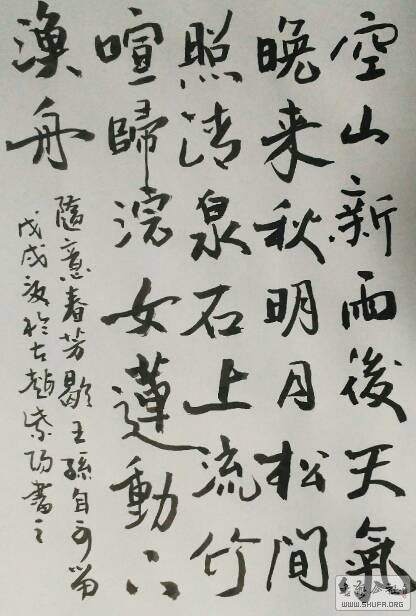 空山新雨後天氣
晚来秋明月松間
照清泉石上流竹
喧歸浣女蓮動下
漁舟
隨意春芳歇王孫自可留
戊戌於古趙書之
公社
WWW.SHUFA.ORG